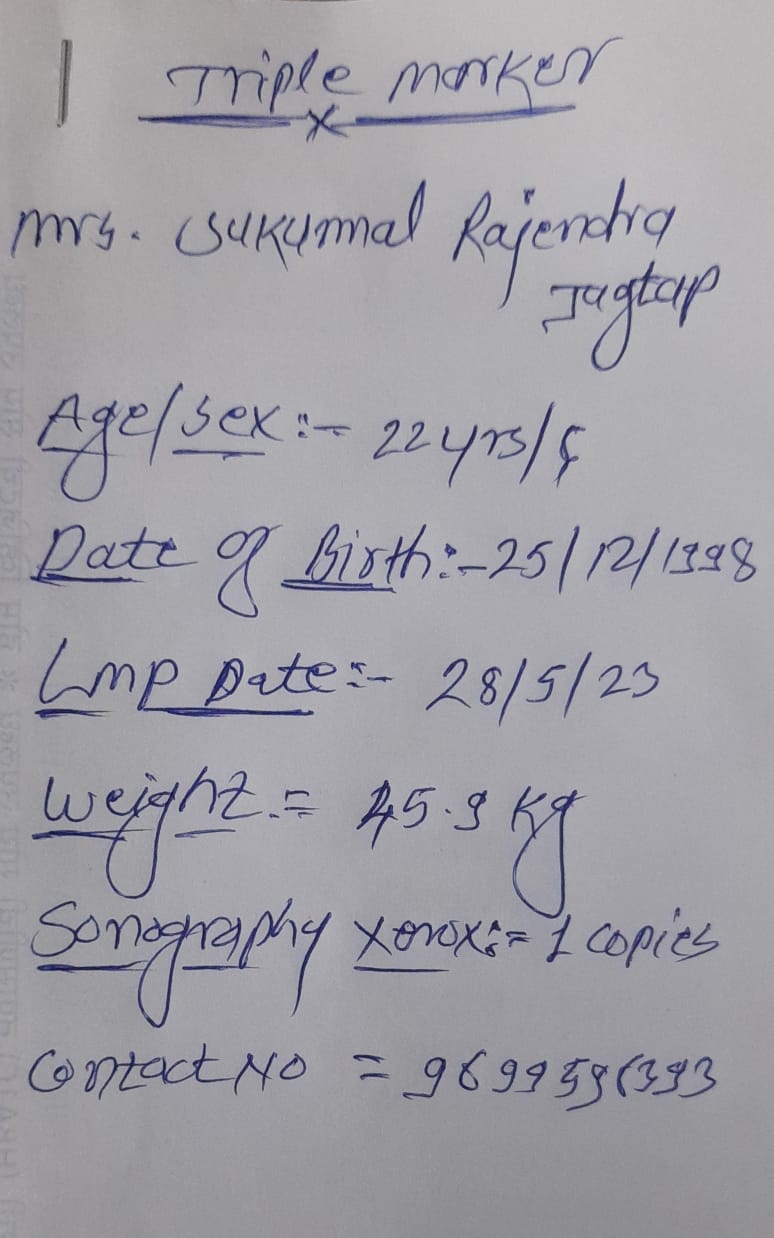 Triple marker
x
Mrs. Sukumal Rajendra
Jagtap
Age/Sex:- 22 yrs/F
Date of Birth:- 25/12/1998
LMP Date:- 28/5/23
Weight.= 45.9 kg
Sonography Xerox:= 1 copies
Contact NO =